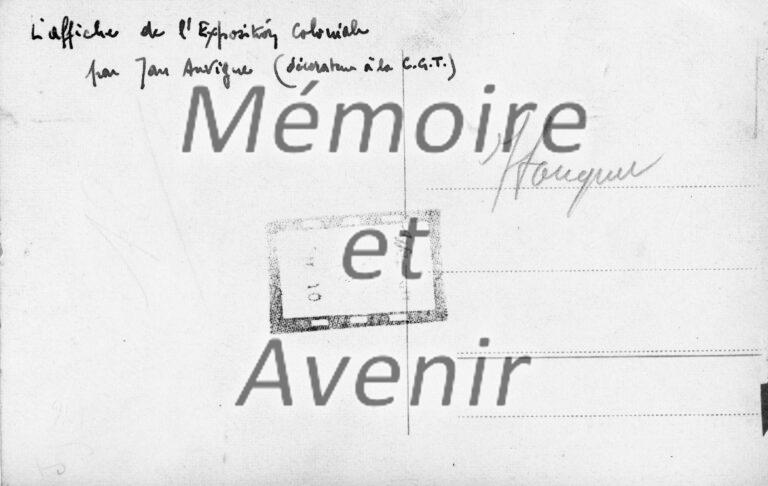 L'affiche de l'Exposition Coloniale
par Jan Auvigne (décorateur à la C.G.T.)
Mémoire
et
Avenir
10